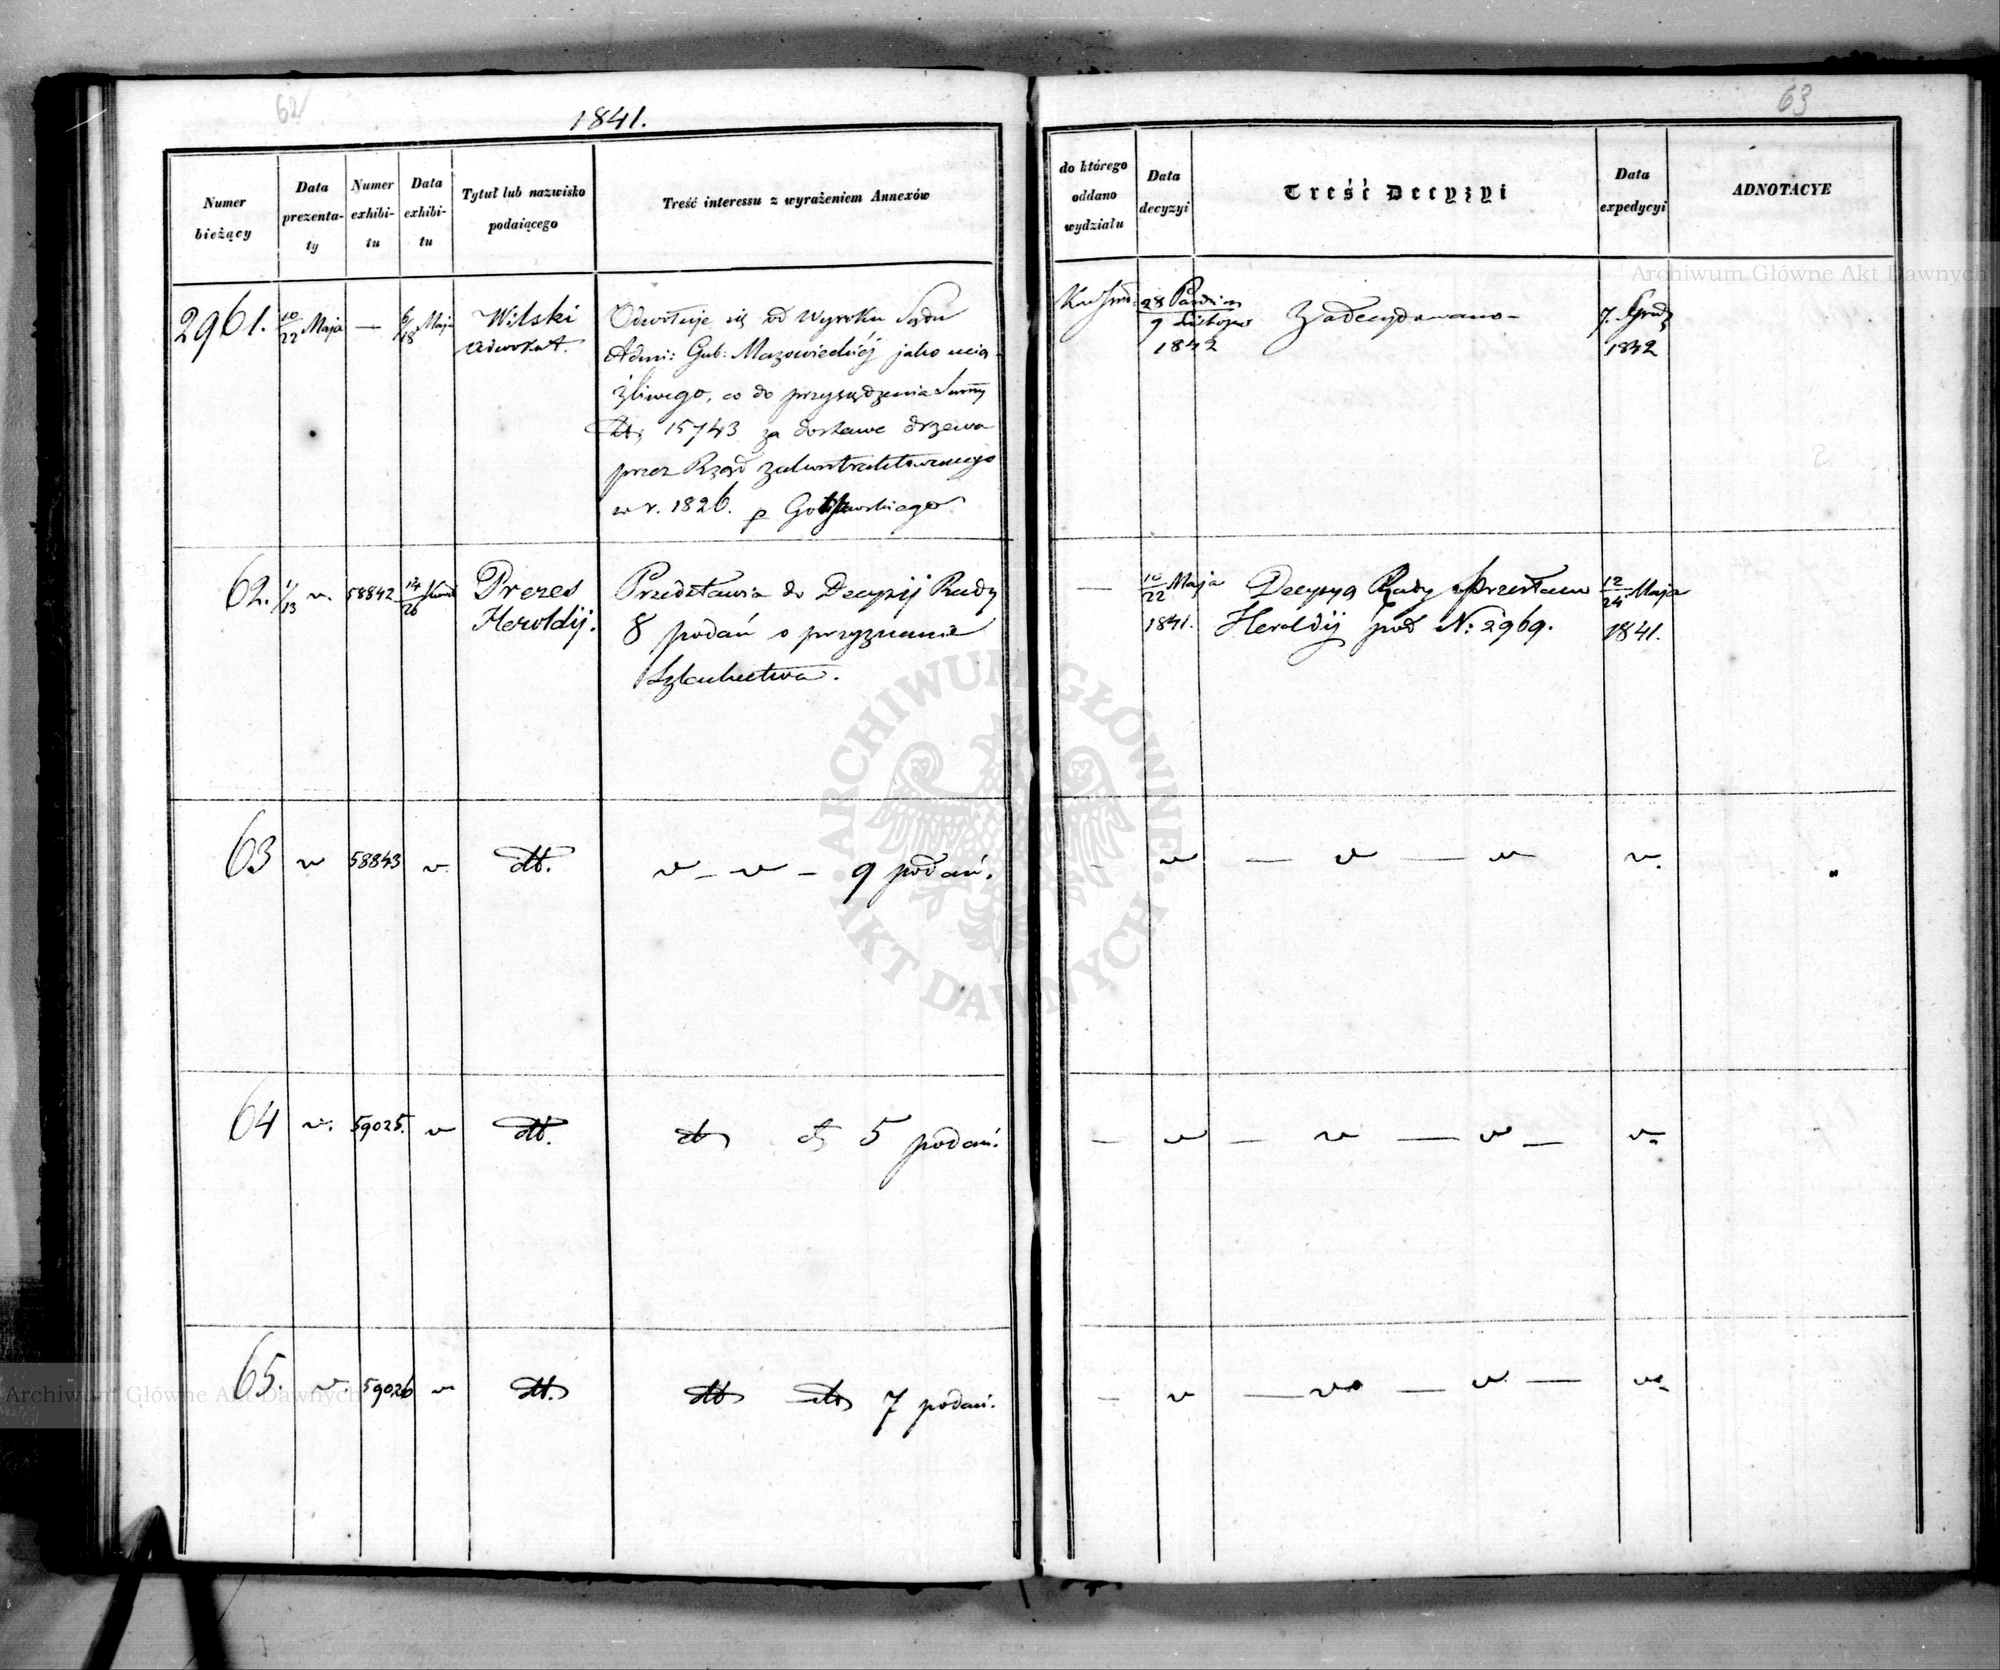 62
1841.
Numer bieżący
Data prezenta-ty
Numer exhibi-tu
Data exhibi-tu
Tytuł lub nazwisko podaiącego
Treść interessu z wyrażeniem Annexów
2961.
10/22 Maja
—
6/18 Maja
Wilski
Adwokat.
Odwołuje się od Wyroku Sądu
Admi: Gub: Mazowieckiéj jako ucią-
żliwego, co do przysądzenia Summy
15743 za dostawę drzewa
przez Rząd zakontraktowanego
w r. 1826. p
62.
1/13
58842
14/26
Prezes
Heroldij.
Przedstawia do Decyzij Rady
8 podań o przyznanie
Szlachectwa.
63
58843
dt.
9 podań.
64
59025.
dt.
5 podań.
65.
59026
dt.
7 podań.
63
do którego oddano wydziału
Data decyzyi
Treść Decyzyi
Data expedycyi
ADNOTACYE
28 Paździer
9 Listopa
1842
Zadecydowano
7. Grud
1842
—
10/22 Maja
1841.
Decyzya Rady przesłana
Heroldij pod N: 2969.
12/24 Maja
1841.
Archiwum Główne Akt Dawnych
ARCHIWUM GŁÓWNE AKT DAWNYCH
Archiwum Główne Akt Dawnych